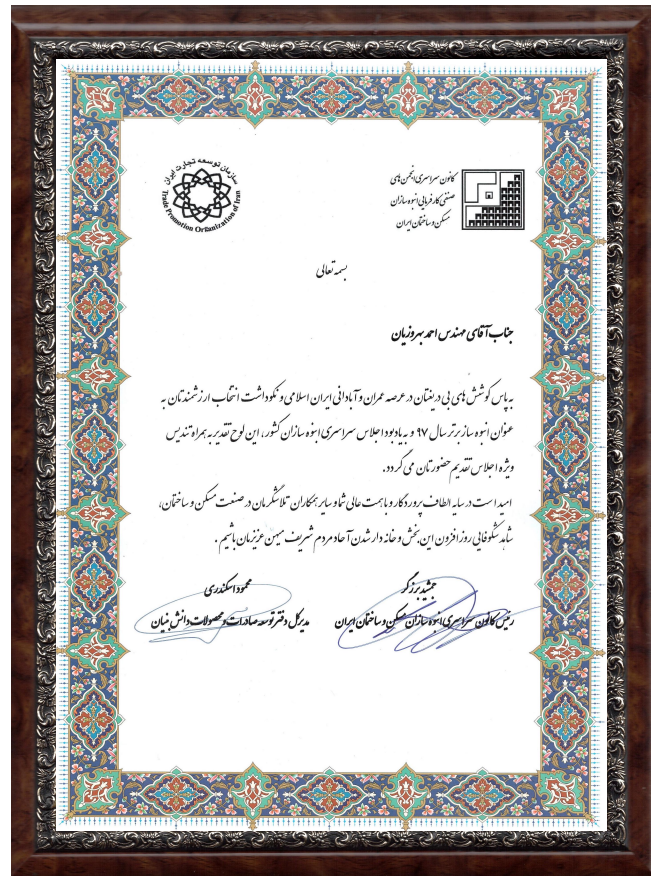 کانون سراسری انجمن های
صنفی کارفرمایی انبوه سازان
مسکن و ساختمان ایران
سازمان توسعه تجارت ایران
Trade Promotion Organization of Iran
بسمه تعالی
جناب آقای مهندس احمد بهروزیان
به پاس کوشش های بی دریغتان در عرصه عمران و آبادانی ایران اسلامی و نکوداشت انتخاب ارزشمندتان به
عنوان انبوه ساز برتر سال ۹۷ و به یادبود اجلاس سراسری انبوه سازان کشور، این لوح تقدیر به همراه تندیس
ویژه اجلاس تقدیم حضورتان می گردد.
امید است در سایه الطاف پروردگار و با همت عالی شما و سایر همکاران تلاشگرمان در صنعت مسکن و ساختمان،
شاهد شکوفایی روز افزون این بخش و خانه دار شدن آحاد مردم شریف میهن عزیزمان باشیم .
جمشید برزگر
رئیس کانون سراسری انبوه سازان مسکن و ساختمان ایران
محمود اسکندری
مدیرکل دفتر توسعه صادرات و محصولات دانش بنیان